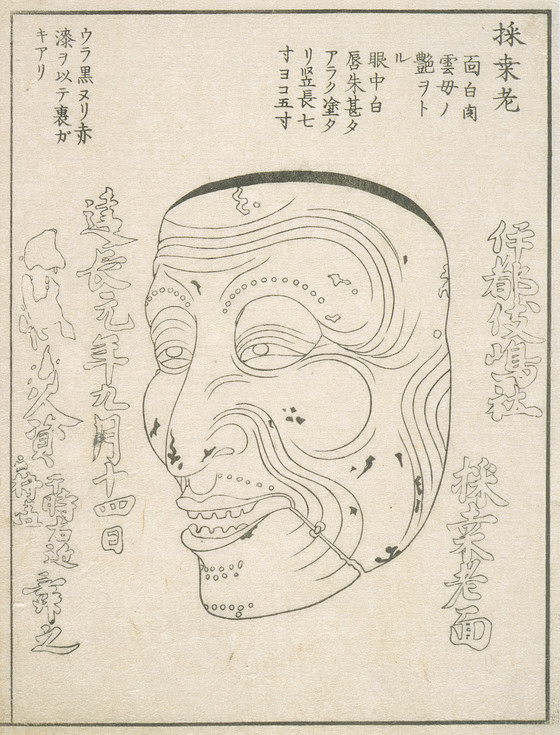 採桒老
面白肉
雲母ノ
艶ヲト
ル
眼中白
唇朱甚タ
アラク塗タ
リ竪長七
寸ヨコ五寸
ウラ黒ヌリ赤
漆ヲ以テ裏ガ
キアリ
伊都伎嶋社
採桒老面
建長元年九月十四日